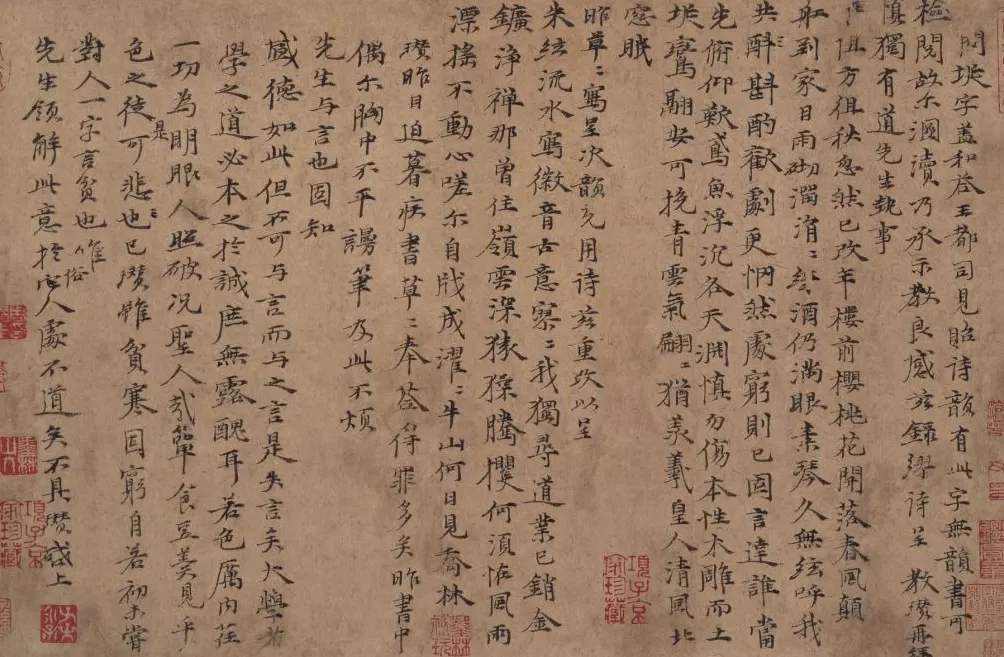 垗字蓋和荅王都司見貽詩韻有此字無韻書可
檢閱故尔溷瀆乃承示教良感茲錄繆诗呈 教瓚再拜
慎獨有道先生執事
阻方徂秋忽然已改年樓前櫻桃花開落春風顛
舡到家日雨砌潤涓〻酒仍满眼素琴久無絃呼我
共酣〻斟酌歡劇更惘然處窮則已固言達誰當
先俯仰歎鳶魚浮沉各天淵慎勿傷本性木雕而土
埏騫翮安可挽青雲氣翩〻猶羨羲皇人清風北
窓眠
昨草〻寫呈次韻充用诗茲重改以呈
朱絃流水寫徽音古意寥〻我獨尋道業已銷金
鑛淨禅那曾住嶺雲深猿猱騰攫何須怖風雨
漂搖不動心嗟尔自戕成濯〻牛山何日見喬林
瓚昨日迫暮疾書草〻奉荅得罪多矣昨書中
偶尔胸中不平謾筆及此不煩
先生与言也固知
盛德如此但不可与言而与之言是失言矣大學者
學之道必本之於誠庶無露醜耳若色厲内荏
一切為明眼人照破況聖人哉簞食豆羹見乎
色之徒可悲也〻已瓚雖貧寒困窮自若初未嘗
是
對人一字言貧也唯
先生領解此意於俗人處不道矣不具瓚啓上
項子京家珍藏
項子京家珍藏